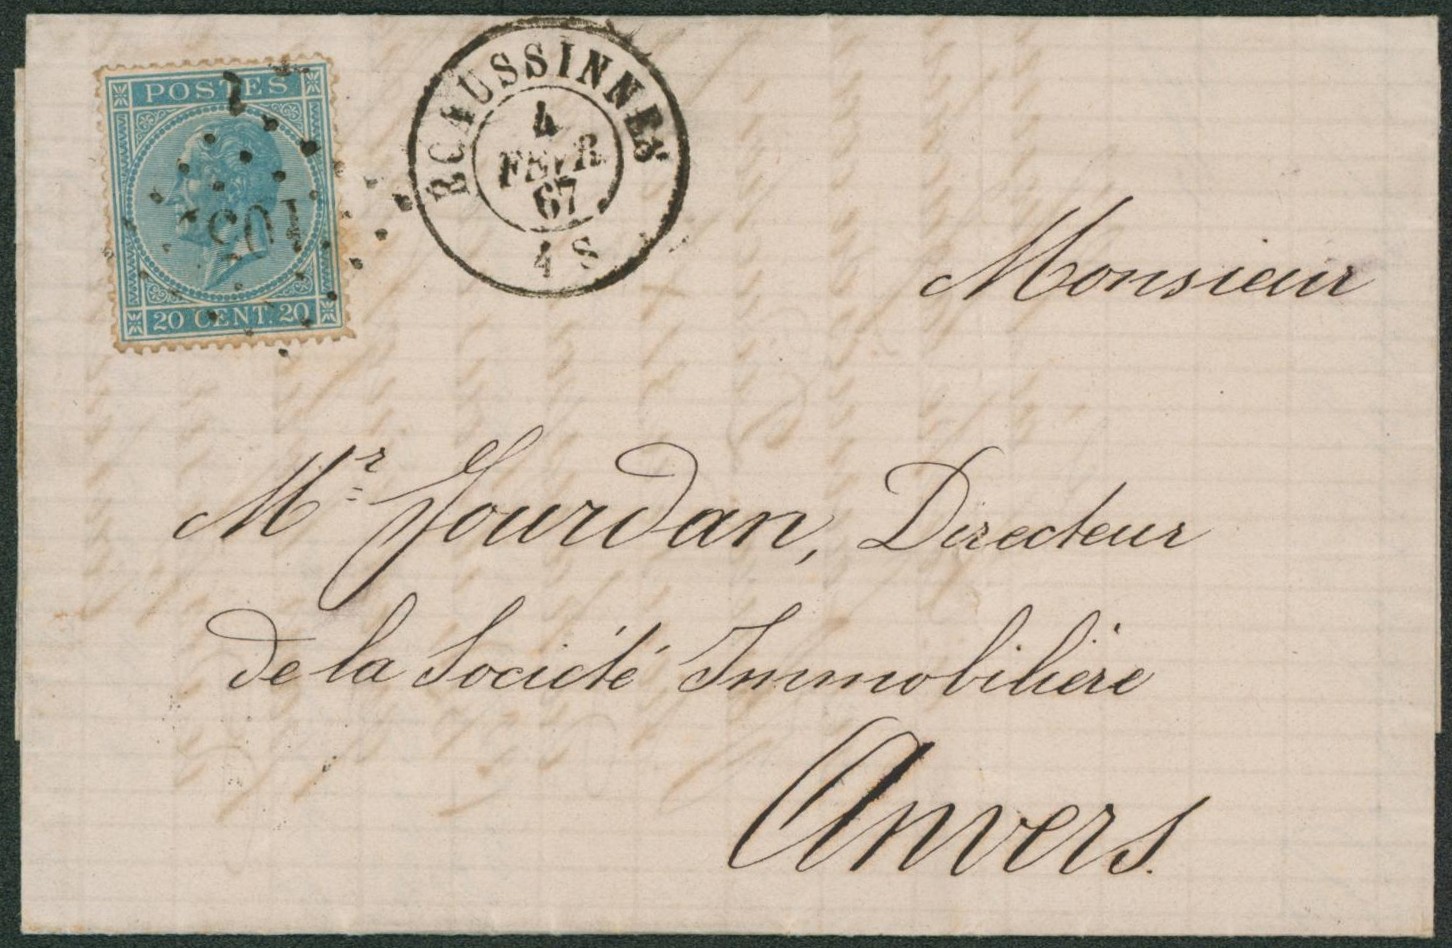 POSTES
105
20 CENT. 20
ECAUSSINNES
4
FEVR
67
4 S
Monsieur
Mr Jourdan, Directeur
de la Société Immobilière
Anvers.